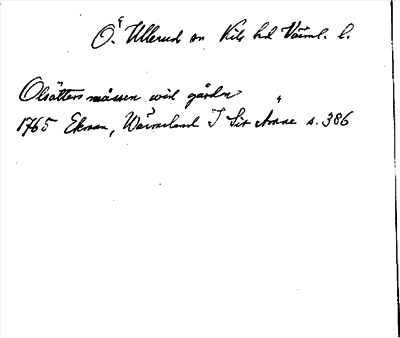 Ö. Ullerud sn Kils hd Värml. l.
Olsätters mossen wid gården
1765 Ekman, Wärmland I Sit s. 386